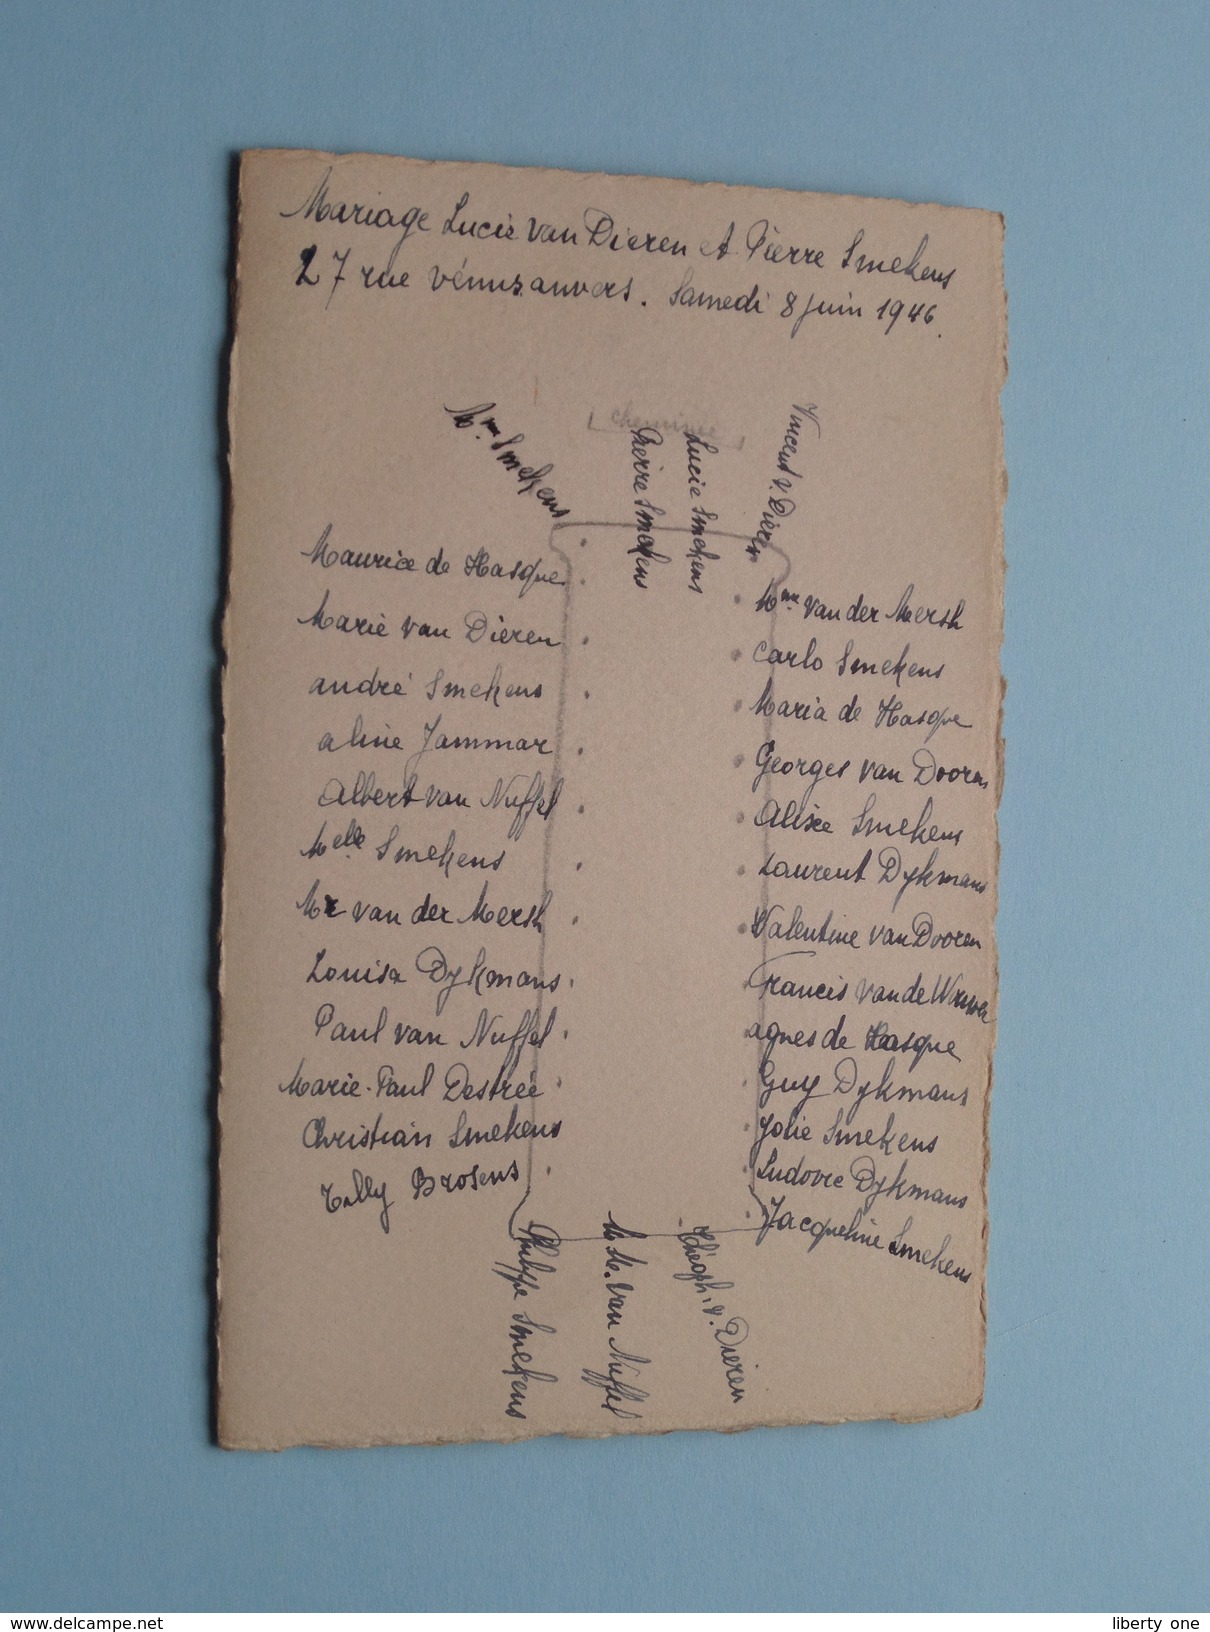 Mariage Lucie van Dieren et Pierre Smekens
27 rue vénus anvers. Samedi 8 juin 1946.
cheminée
Mme Smekens
Pierre Smekens
Lucie Smekens
Vincent v. Dieren
Maurice de Hasque
Marie van Dieren
andré Smekens
aline Jammar
Albert van Nuffel
Melle Smekens
Mr van der Mersh
Louisa Dykmans
Paul van Nuffel
Marie-Paul Destrée
Christian Smekens
Tilly Brosens
Mme van der Mersh
Carlo Smekens
Maria de Hasque
Georges van Dooren
Alisée Smekens
Laurent Dykmans
Valentine van Dooren
Francis van de
agnes de Hasque
Guy Dykmans
Jolie Smekens
Ludovic Dykmans
Jacqueline Smekens
Philippe Smekens
M. M. van Nuffel
Théoph. v. Dieren
delcampe.net
liberty_one